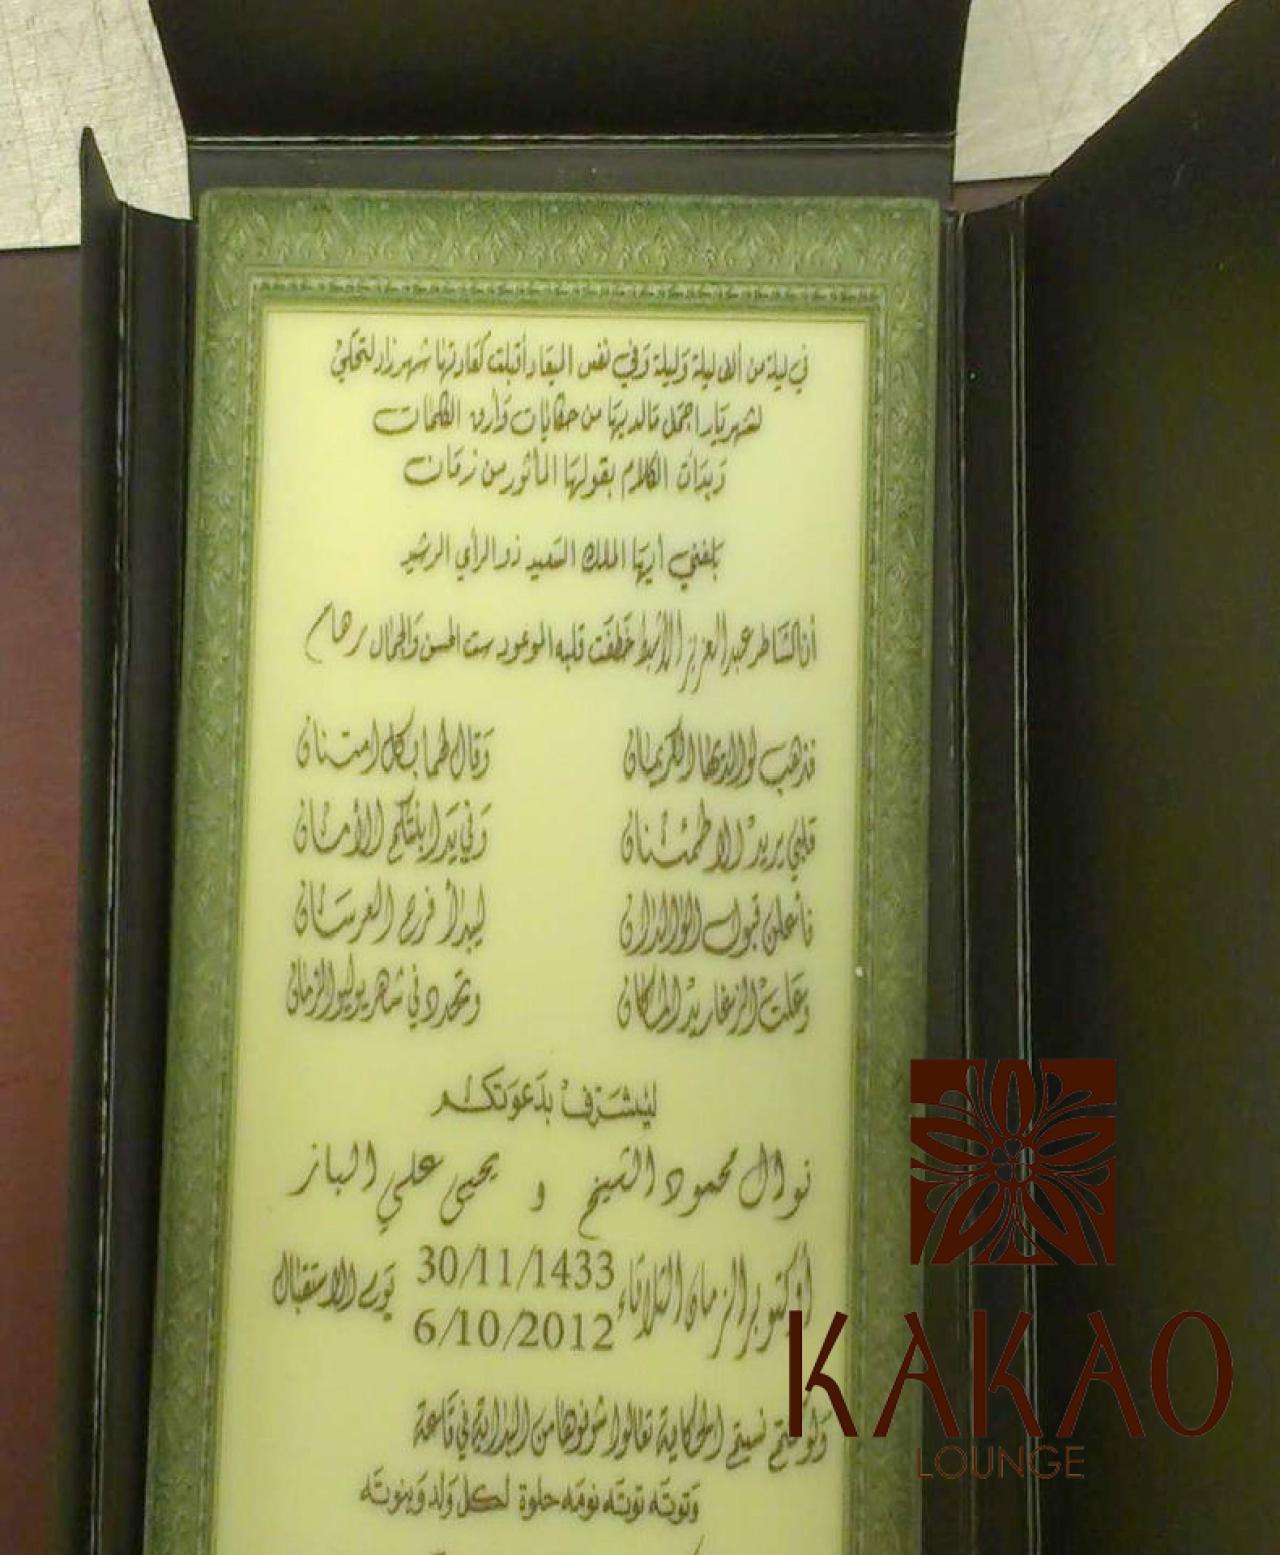 في ليلة من ألف ليلة وليلة وفي نفس الميعاد أقبلت كعادتها شهرزاد لتحكي
لشهريار اجمل مالديها من حكايات وأرق الكلمات
وبدأت الكلام بقولها المأثور من زمان
بلغني أيها الملك السعيد ذو الرأي الرشيد
أن الشاطر عبدالعزيز خطفت قلبه الموعود ست الحسن والجمال رهام
فذهب لوالديها الكريمان وقال لهما بكل امتنان
قلبي يريد الاطمئنان وفي يد ابنتكم الأمان
فأعلن قبول الوالدان ليبدأ فرح العرسان
وعلت الزغاريد المكان وتحدد في شهر يوليو الزمان
ليتشرف بدعوتكم
نوال محمود الشيخ و يحيى علي الباز
أكتوبر الزمان الثلاثاء 30/11/1433 يوم الاستقبال
6/10/2012
ولو حبيتم نسيتم الحكاية تعالوا شوفوها من البداية في قاعة
وتوته توته نومه حلوة لكل ولد وبنوته
KAKAO
LOUNGE